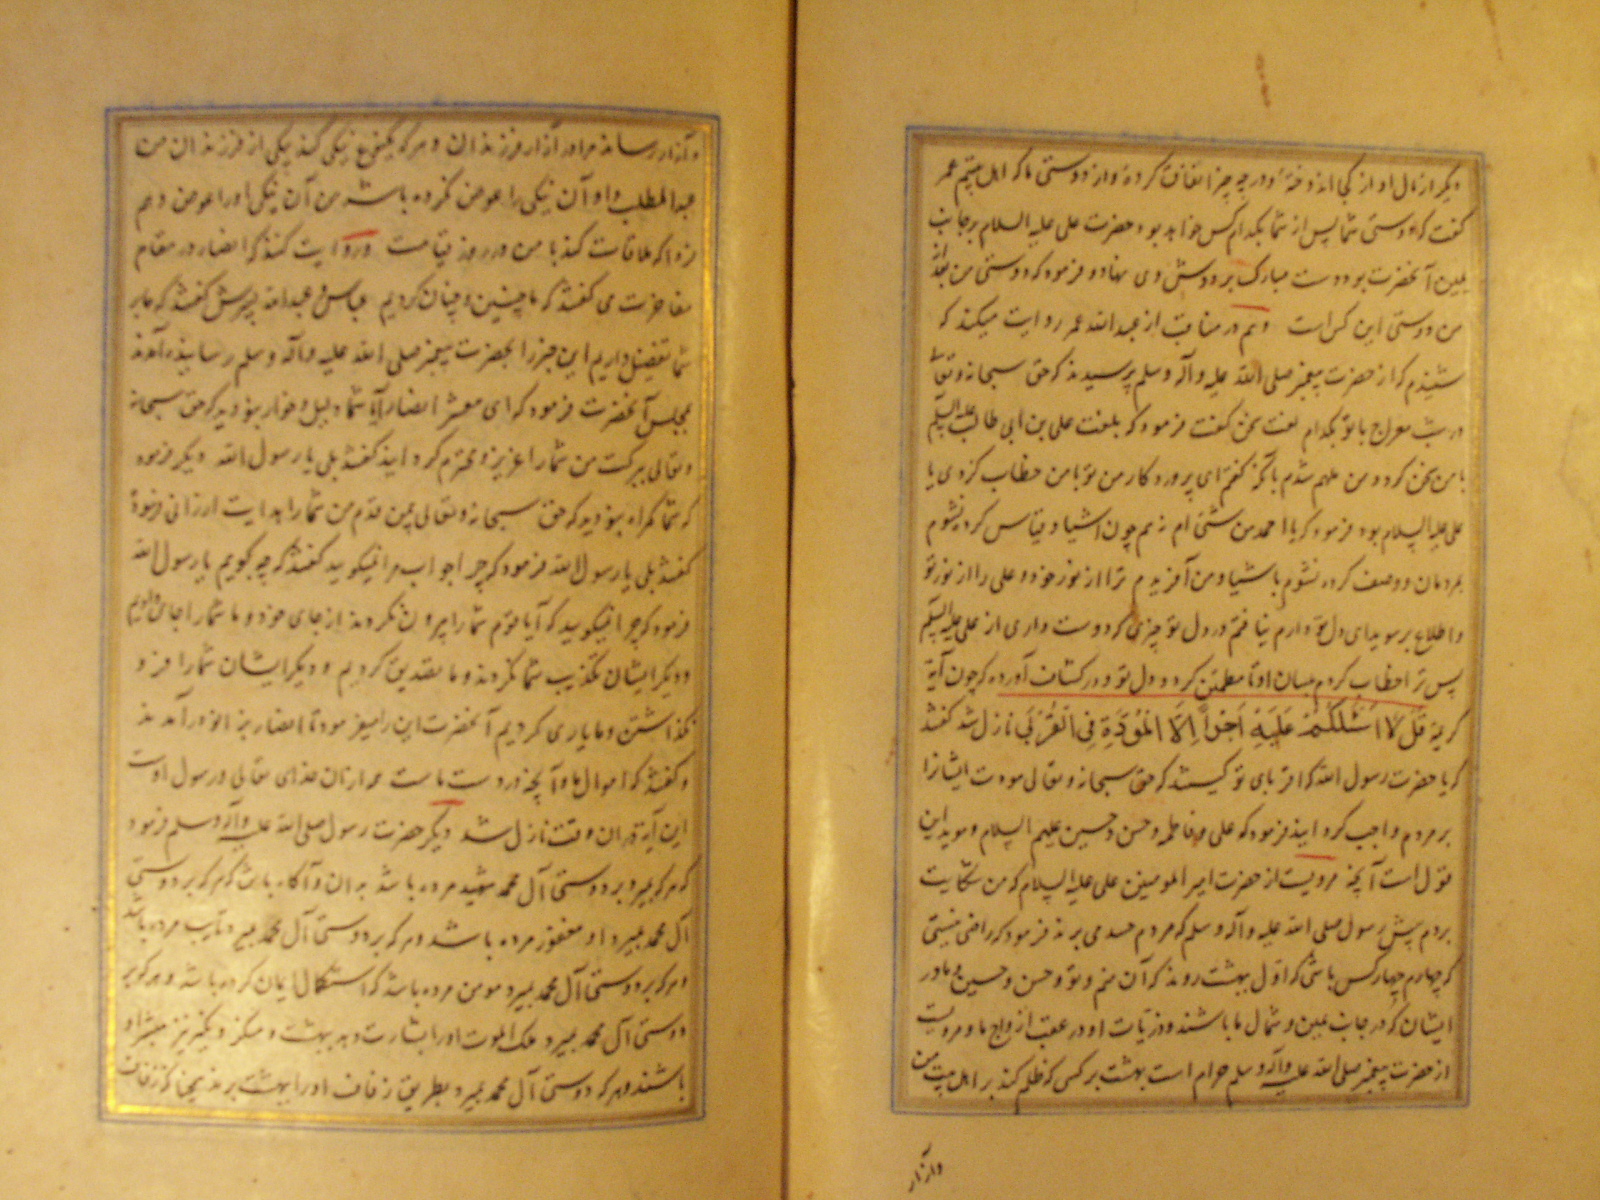 دیکر از مال او از کجا اندوخته و در چه چیز انفاق کرده و از دوستی ما که اهل بیتیم عمر
کفت که دوستی شما پس از شما بکدام کس خواهد بود حضرت علی علیه السلام بر جانب
یمین آنحضرت بود دست مبارک بر دوش وی نهاد و فرمود که دوستی من بعد از
من دوستی این کس است وهم در مناقب از عبد الله عمر روایت میکند که
شنیدم که از حضرت پیغمبر صلی الله علیه و آله وسلم پرسیدند که حق سبحانه وتعالی
در شب معراج با تو بکدام لغت سخن کفت فرمود که بلغت علی بن ابی طالب علیه السلام
با من سخن کرد و من ملهم شدم بآنکه کفتم ای پروردکار من تو با من خطاب کردی یا
علی علیه السلام بود فرمود که یا احمد من شئ ام نه هم چون اشیا و قیاس کرده نشوم
بمردمان و وصف کرده نشوم باشیا و من آفریدم ترا از نور خود و علی را از نور تو
و اطلاع بر سویدای دل تو دارم نیافتم در دل تو چیزی که دوست داری از علی علیه السلام
پس ترا خطاب کردم بلسان او تا مطمئن کردد دل تو و در کشاف آورده که چون آیة
کریمة قُل لا اَسْئَلُکُمْ عَلَیْهِ اَجْراً اِلاَّ الْمَوَدَّةِ فِی الْقُرْبَی نازل شد کفتند
که یا حضرت رسول الله که اقربای تو کیستند که حق سبحانه وتعالی مودت ایشانرا
بر مردم واجب کردانید فرمود که علی و فاطمه و حسن و حسین علیهم السلام و موید این
قول است آنچه مرویست از حضرت امیر المومنین علی علیه السلام که من شکایت
بردم پیش رسول صلی الله علیه و آله وسلم که مردم حسد می برند فرمود که راضی نیستی
که چهارم چهار کس باشی که اول بهشت روند که آن منم و تو و حسن و حسین و مادر
ایشان که در جانب یمین و شمال ما باشند و ذریات او در عقب ازواج ما و مرویست
از حضرت پیغمبر صلی الله علیه وآله وسلم حرام است بهشت بر کسی که ظلم کند بر اهل بیت من
وازار
و آزار رساند مرا در آزار فرزندان و هر که یکنوع نیکی کند بیکی از فرزندان من
عبد المطلب و او آن نیکی را عوض نکرده باشد من آن نیکی او را عوض دهم
فردا که ملاقات کند با من در روز قیامت و روایت کنند که انصار در مقام
مفاخرت می کفتند که ما چنین و چنان کردیم عباس و عبد الله پسرش کفتند که ما بر
شما تفضیل داریم این خبر را بحضرت پیغمبر صلی الله علیه وآله وسلم رسانیدند آمدند
بمجلس آنحضرت فرمود که ای معشر انصار آیا شما ذلیل و خوار نبودید که حق سبحانه
وتعالی ببرکت من شما را عزیز و محترم کردانید کفتند بلی یا رسول الله دیکر فرمود
که شما کمراه نبودید که حق سبحانه وتعالی بیمن قدم من شما را هدایت ارزانی فرمود
کفتند بلی یا رسول الله فرمود که چرا جواب مرا نمیکویید کفتند که چه کوییم یا رسول الله
فرمود که چرا نمیکویید که آیا قوم شما را بیرون نکردند از جای خود و ما شما را جای دادیم
و دیکر ایشان تکذیب شما نکردند و ما تصدیق کردیم و دیکر ایشان شما را فرو
نکذاشتند و ما یاری کردیم آنحضرت این را میفرمود تا انصار بزانو در آمدند
و کفتند که اموال ما و آنچه در دست ماست همه از آن خدای تعالی و رسول اوست
این آیة در ان وقت نازل شد دیکر حضرت رسول صلی الله علیه وآله وسلم فرمود
که هر که بمیرد بر دوستی آل محمد شهید مرده باشد بدان و آکاه باش که هر که بر دوستی
آل محمد بمیرد او مغفور مرده باشد و هر که بر دوستی آل محمد بمیرد تایب مرده باشد
و هر که بر دوستی آل محمد بمیرد مومن مرده باشد که استکمال ایمان کرده باشد و هر که بر
دوستی آل محمد بمیرد ملک الموت او را بشارت دهد ببهشت و منکر و نکیر نیز مبشر او
باشند و هر که بر دوستی آل محمد بمیرد بطریق زفاف او را ببهشت برند همچنانکه زفاف